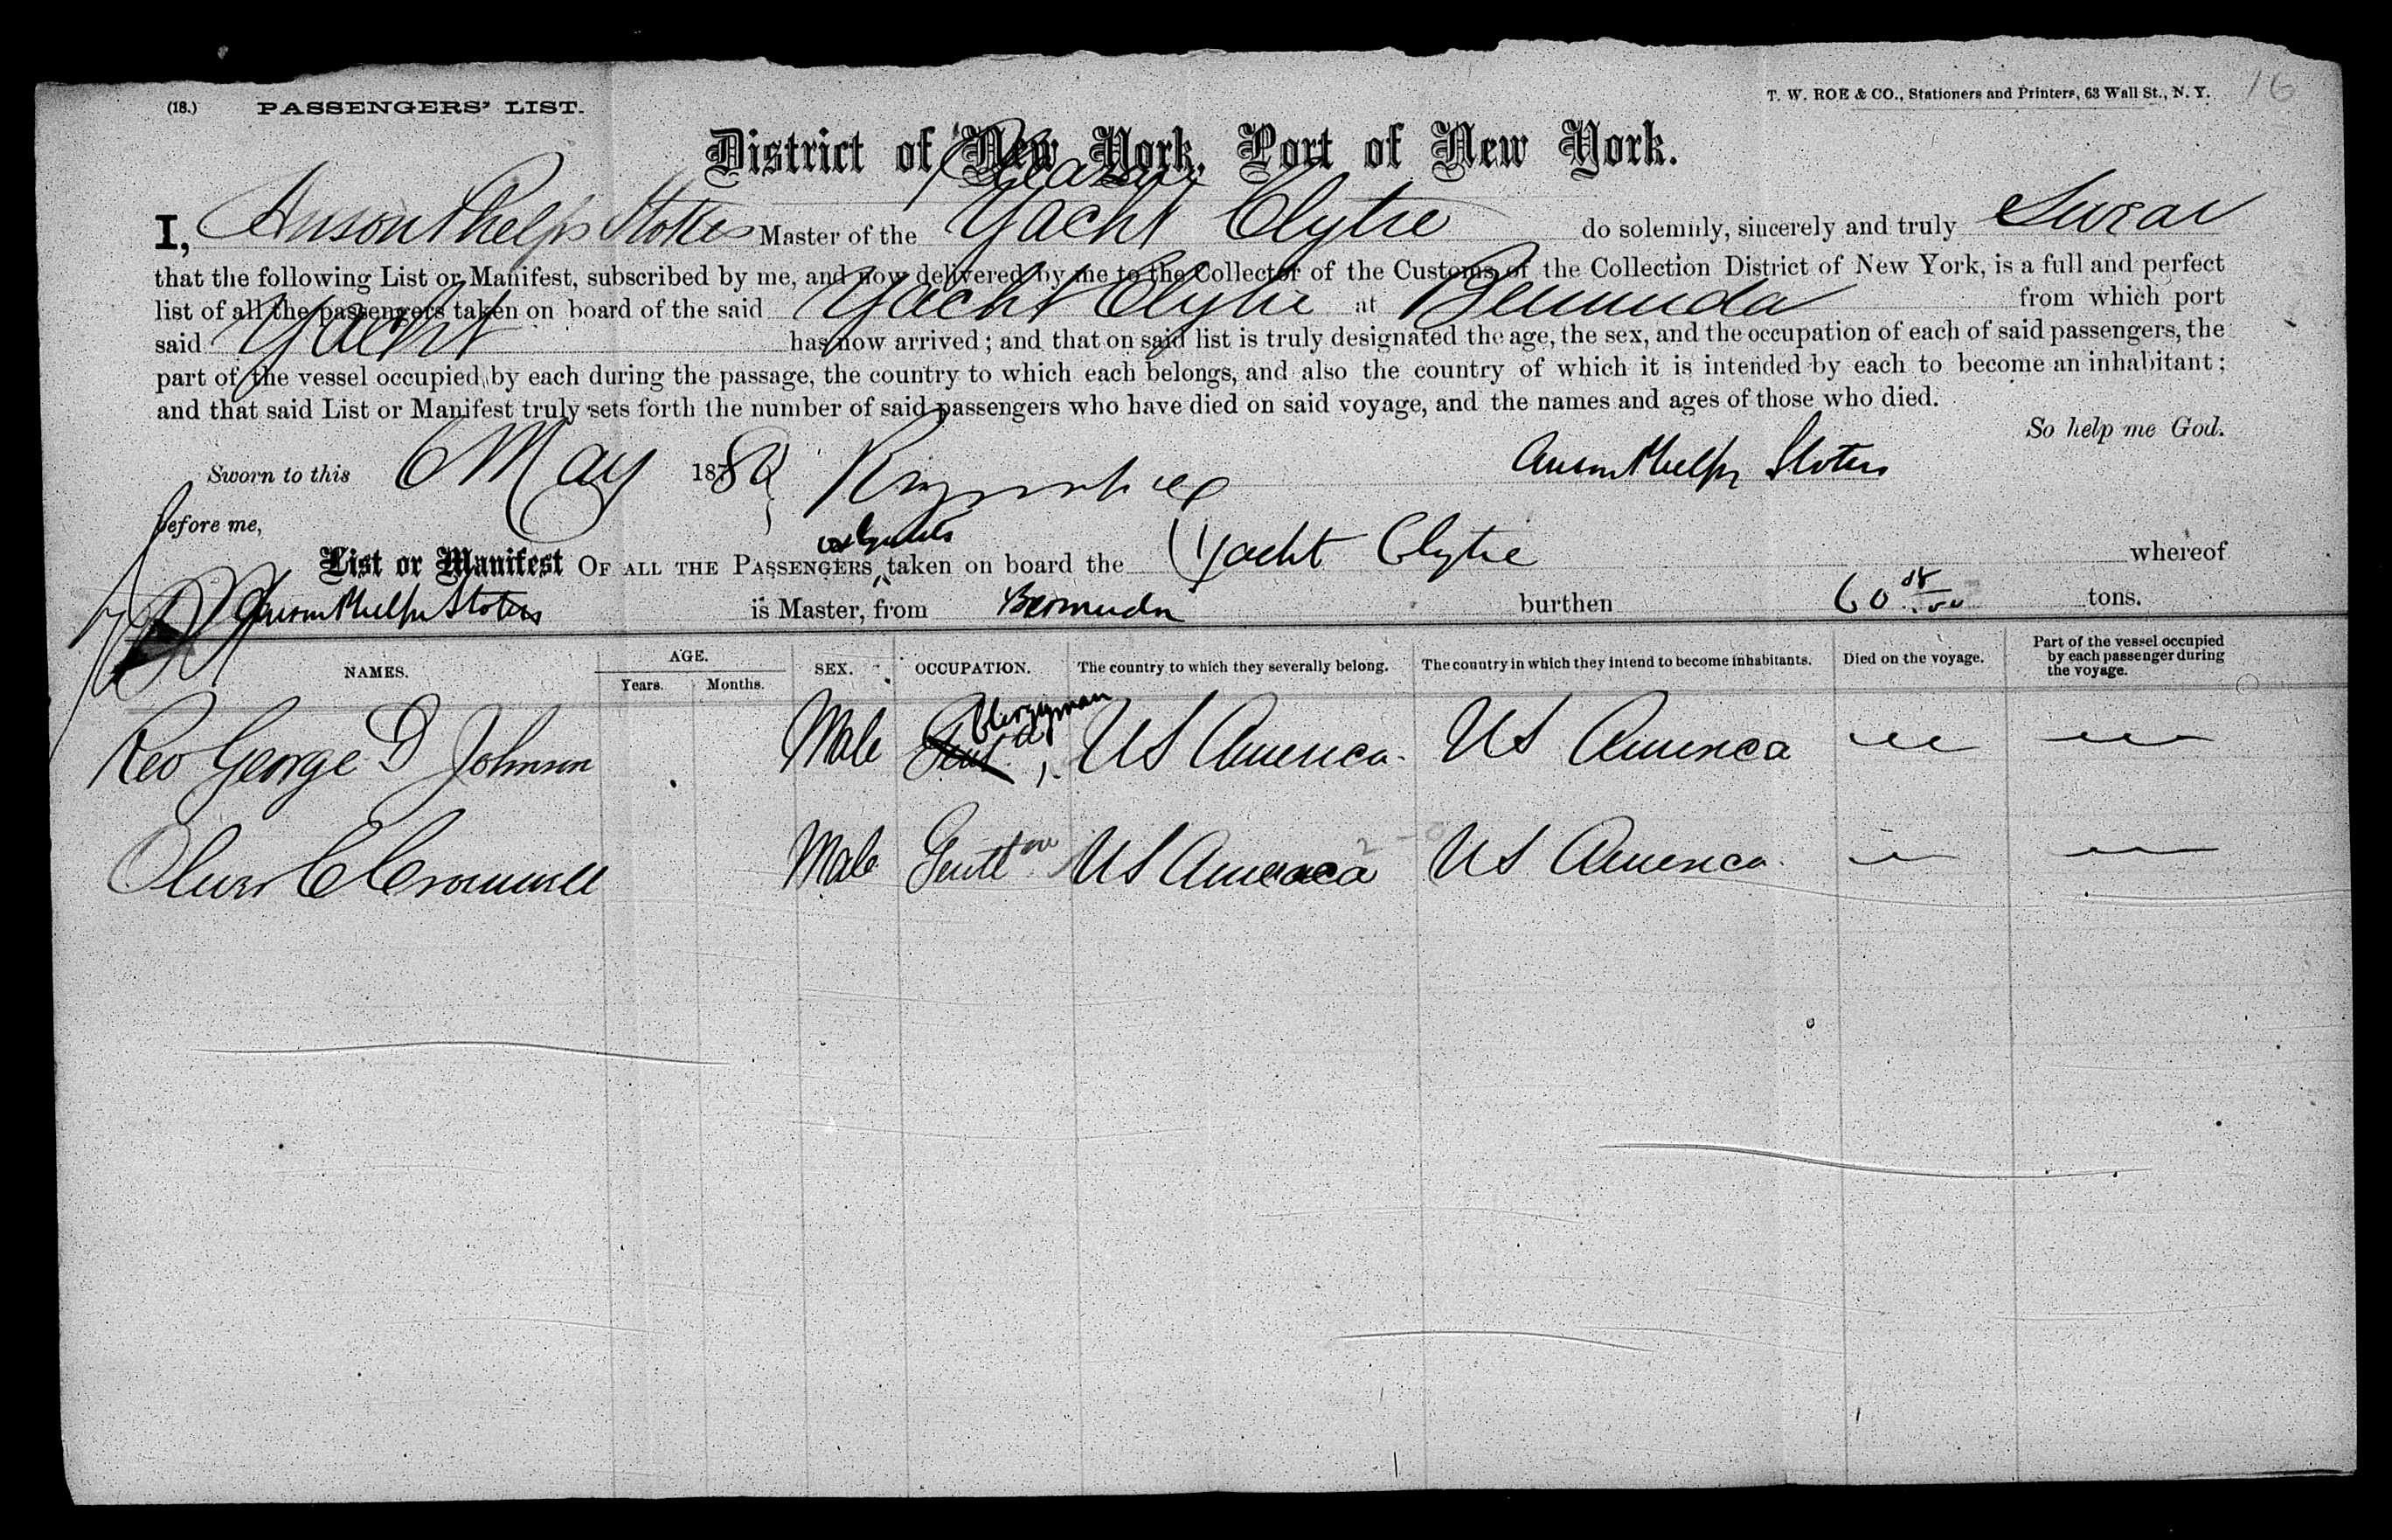 (18.) PASSENGERS' LIST. T. W. ROE & CO., Stationers and Printers, 63 Wall St., N. Y. 16
District of New York, Port of New York.
I, Anson Phelps Stokes Master of the Yacht Clytie do solemnly, sincerely and truly Swear
that the following List or Manifest, subscribed by me, and now delivered by me to the Collector of the Customs of the Collection District of New York, is a full and perfect
list of all the passengers taken on board of the said Yacht Clytie at Bermuda from which port
said Yacht has now arrived; and that on said list is truly designated the age, the sex, and the occupation of each of said passengers, the
part of the vessel occupied by each during the passage, the country to which each belongs, and also the country of which it is intended by each to become an inhabitant;
and that said List or Manifest truly sets forth the number of said passengers who have died on said voyage, and the names and ages of those who died.
So help me God.
Sworn to this 6 May 188 Anson Phelps Stokes
before me,
List or Manifest OF ALL THE PASSENGERS, taken on board the Yacht Clytie whereof
Anson Phelps Stokes is Master, from Bermuda burthen 60 tons.
NAMES. AGE. Years. Months. SEX. OCCUPATION. The country to which they severally belong. The country in which they intend to become inhabitants. Died on the voyage. Part of the vessel occupied by each passenger during the voyage.
Rev George D Johnson Male Clergyman US America. US America
Oliver E Cromwell Male Gentlm US America US America.